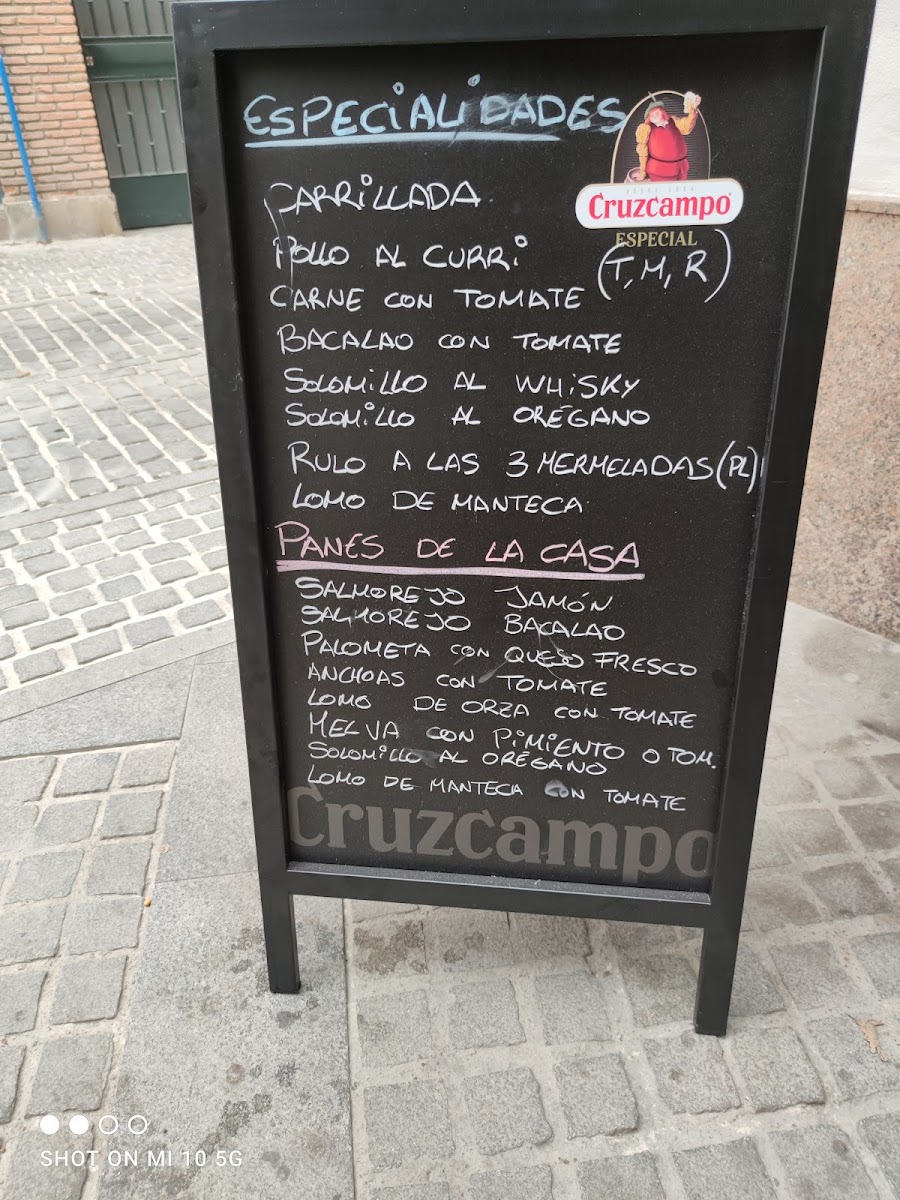 ESPECIALIDADES
Cruzcampo
ESPECIAL
CARRILLADA
POLLO AL CURRI (T, M, R)
CARNE CON TOMATE
BACALAO CON TOMATE
SOLOMILLO AL WHISKY
SOLOMILLO AL ORÉGANO
RULO A LAS 3 MERMELADAS (PL)
LOMO DE MANTECA
PANES DE LA CASA
SALMOREJO JAMÓN
SALMOREJO BACALAO
PALOMETA CON QUESO FRESCO
ANCHOAS CON TOMATE
LOMO DE ORZA CON TOMATE
MELVA CON PIMIENTO O TOM.
SOLOMILLO AL ORÉGANO
LOMO DE MANTECA CON TOMATE
Cruzcampo
SHOT ON MI 10 5G